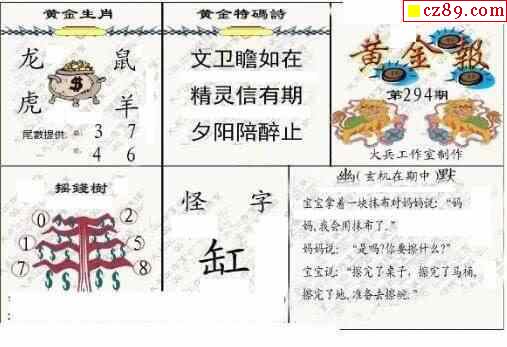 cz89.com
黄金生肖
龙 鼠
虎 羊
尾數提供: 3 7
4 6
黄金特碼詩
文卫瞻如在
精灵信有期
夕阳陪醉止
黄金報
第294期
火兵工作室制作
摇錢樹
0 2
1 5
7 8
怪 字
缸
幽(玄机在期中)默
宝宝拿着一块抹布对妈妈说:“妈
妈,我会用抹布了.”
妈妈说:“是吗?你要擦什么?”
宝宝说:“擦完了桌子，擦完了马桶,
擦完了地,准备去擦碗.”